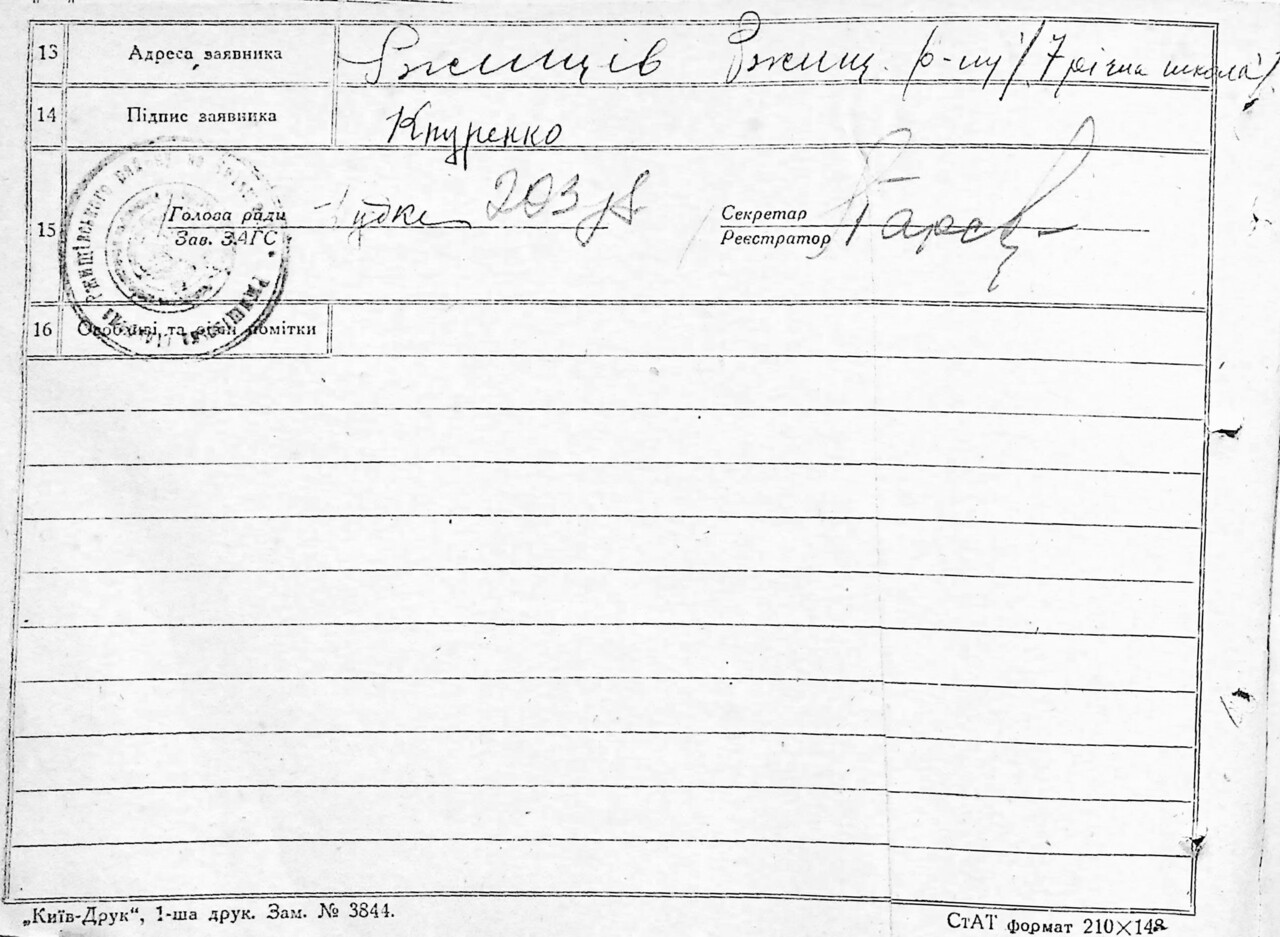 13 Адреса заявника Ржищів Ржищ. р-ну /7 річна школа/
14 Підпис заявника Кнуренко
15 Голова ради
Зав. ЗАГС
Секретар
Реєстратор
16 Особливі та різні помітки
„Київ-Друк“, 1-ша друк. Зам. № 3844.
СтАТ формат 210×148